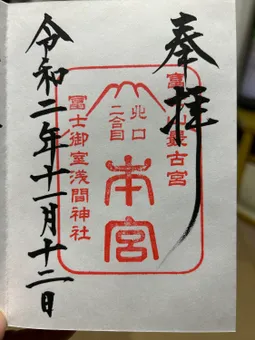 奉拝
富士最古宮
北口
二合目
本宮
冨士御室浅間神社
令和二年十一月十二日